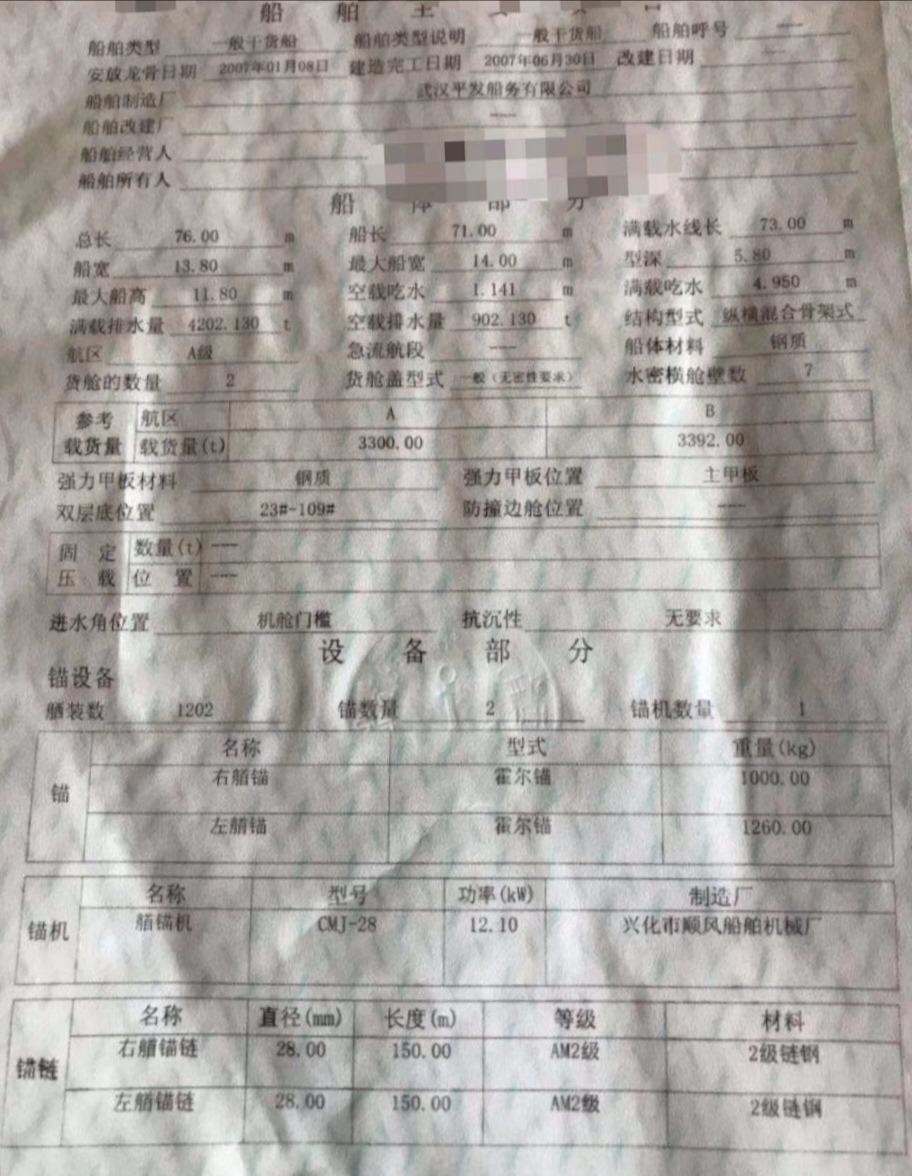 船舶主
船舶类型 一般干货船 船舶类型说明 一般干货船 船舶呼号 ---
安放龙骨日期 2007年01月08日 建造完工日期 2007年06月30日 改建日期 ---
船舶制造厂 武汉平发船务有限公司
船舶改建厂 ---
船舶经营人
船舶所有人
船 体 部 分
总长 76.00 m 船长 71.00 m 满载水线长 73.00 m
船宽 13.80 m 最大船宽 14.00 m 型深 5.80 m
最大船高 11.80 m 空载吃水 1.141 m 满载吃水 4.950 m
满载排水量 4202.130 t 空载排水量 902.130 t 结构型式 纵横混合骨架式
航区 A级 急流航段 --- 船体材料 钢质
货舱的数量 2 货舱盖型式 一般(无密性要求) 水密横舱壁数 7
参考 航区 A B
载货量 载货量(t) 3300.00 3392.00
强力甲板材料 钢质 强力甲板位置 主甲板
双层底位置 23#-109# 防撞边舱位置 ---
固 定 数量(t) ---
压 载 位 置 ---
进水角位置 机舱门槛 抗沉性 无要求
设 备 部 分
锚设备
舾装数 1202 锚数量 2 锚机数量 1
名称 型式 重量(kg)
锚 右艏锚 霍尔锚 1000.00
左艏锚 霍尔锚 1260.00
名称 型号 功率(kW) 制造厂
锚机 艏锚机 CMJ-28 12.10 兴化市顺风船舶机械厂
名称 直径(mm) 长度(m) 等级 材料
锚链 右艏锚链 28.00 150.00 AM2级 2级链钢
左艏锚链 28.00 150.00 AM2级 2级链钢